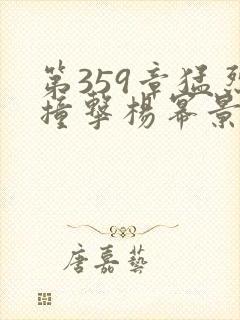 第359章猛烈
撞擊楊冪景
唐嘉藝